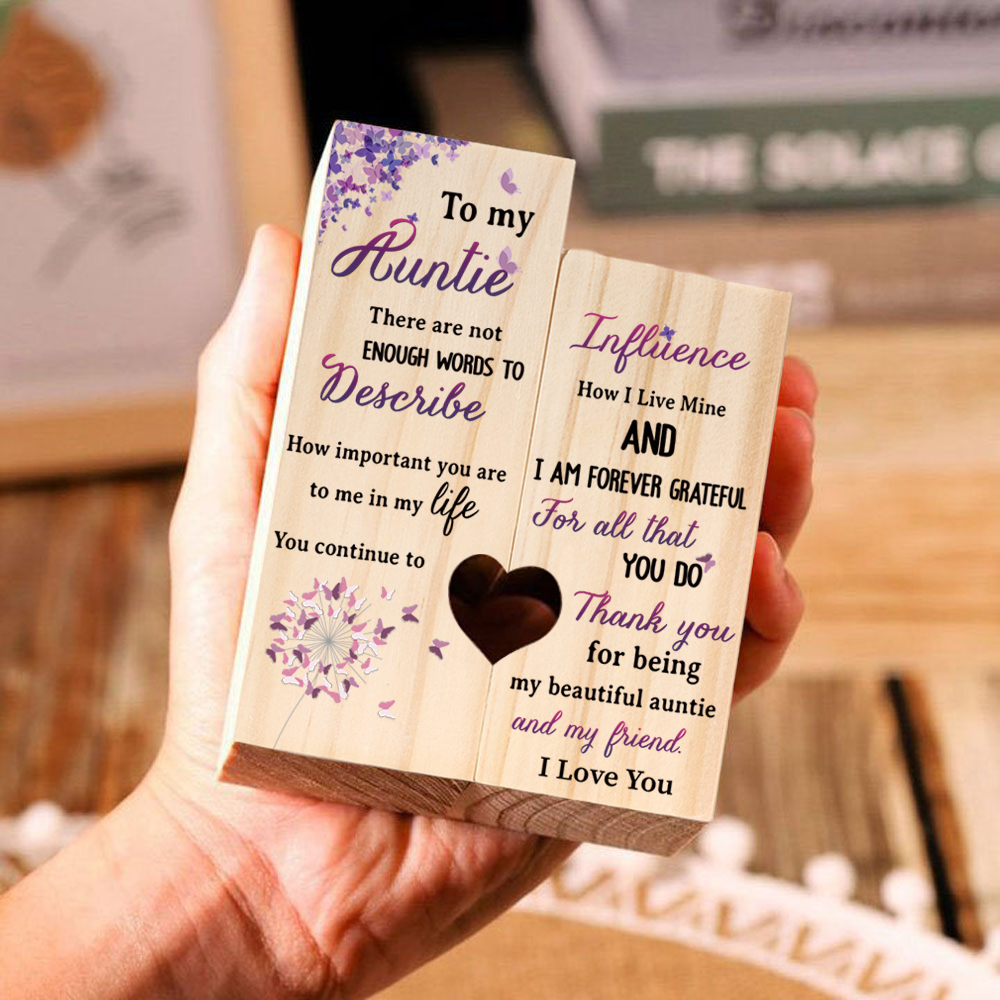 To my
Auntie
There are not
ENOUGH WORDS TO
Describe
How important you are
to me in my life
You continue to
Influence
How I Live Mine
AND
I AM FOREVER GRATEFUL
For all that
YOU DO
Thank you
for being
my beautiful auntie
and my friend.
I Love You
THE SOLACE